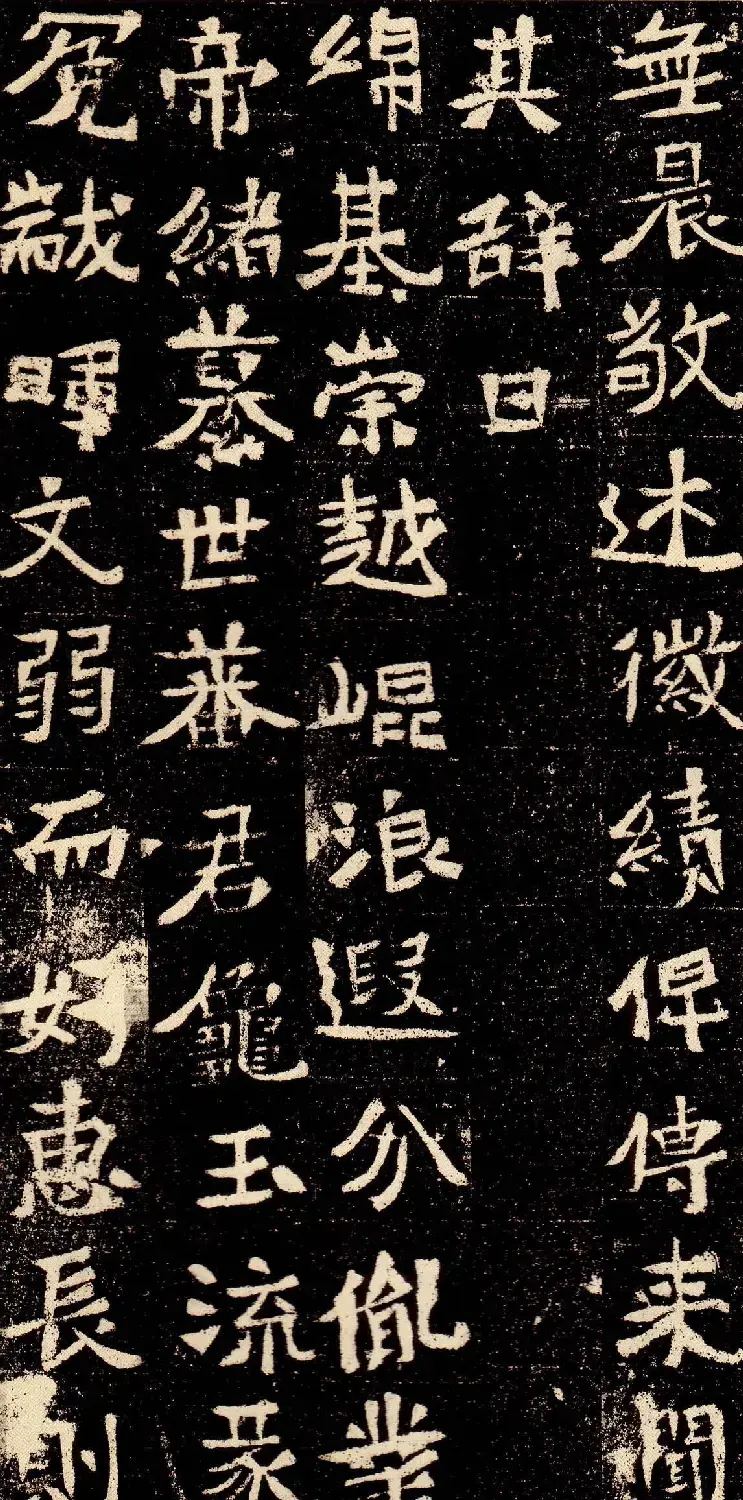 無晨敬述徽績俾傳来聞
其辞曰
綿基崇越崐浪遐分胤業
帝緒纂世蕃君龜玉流篆
冕黻暉文弱而好惠長則